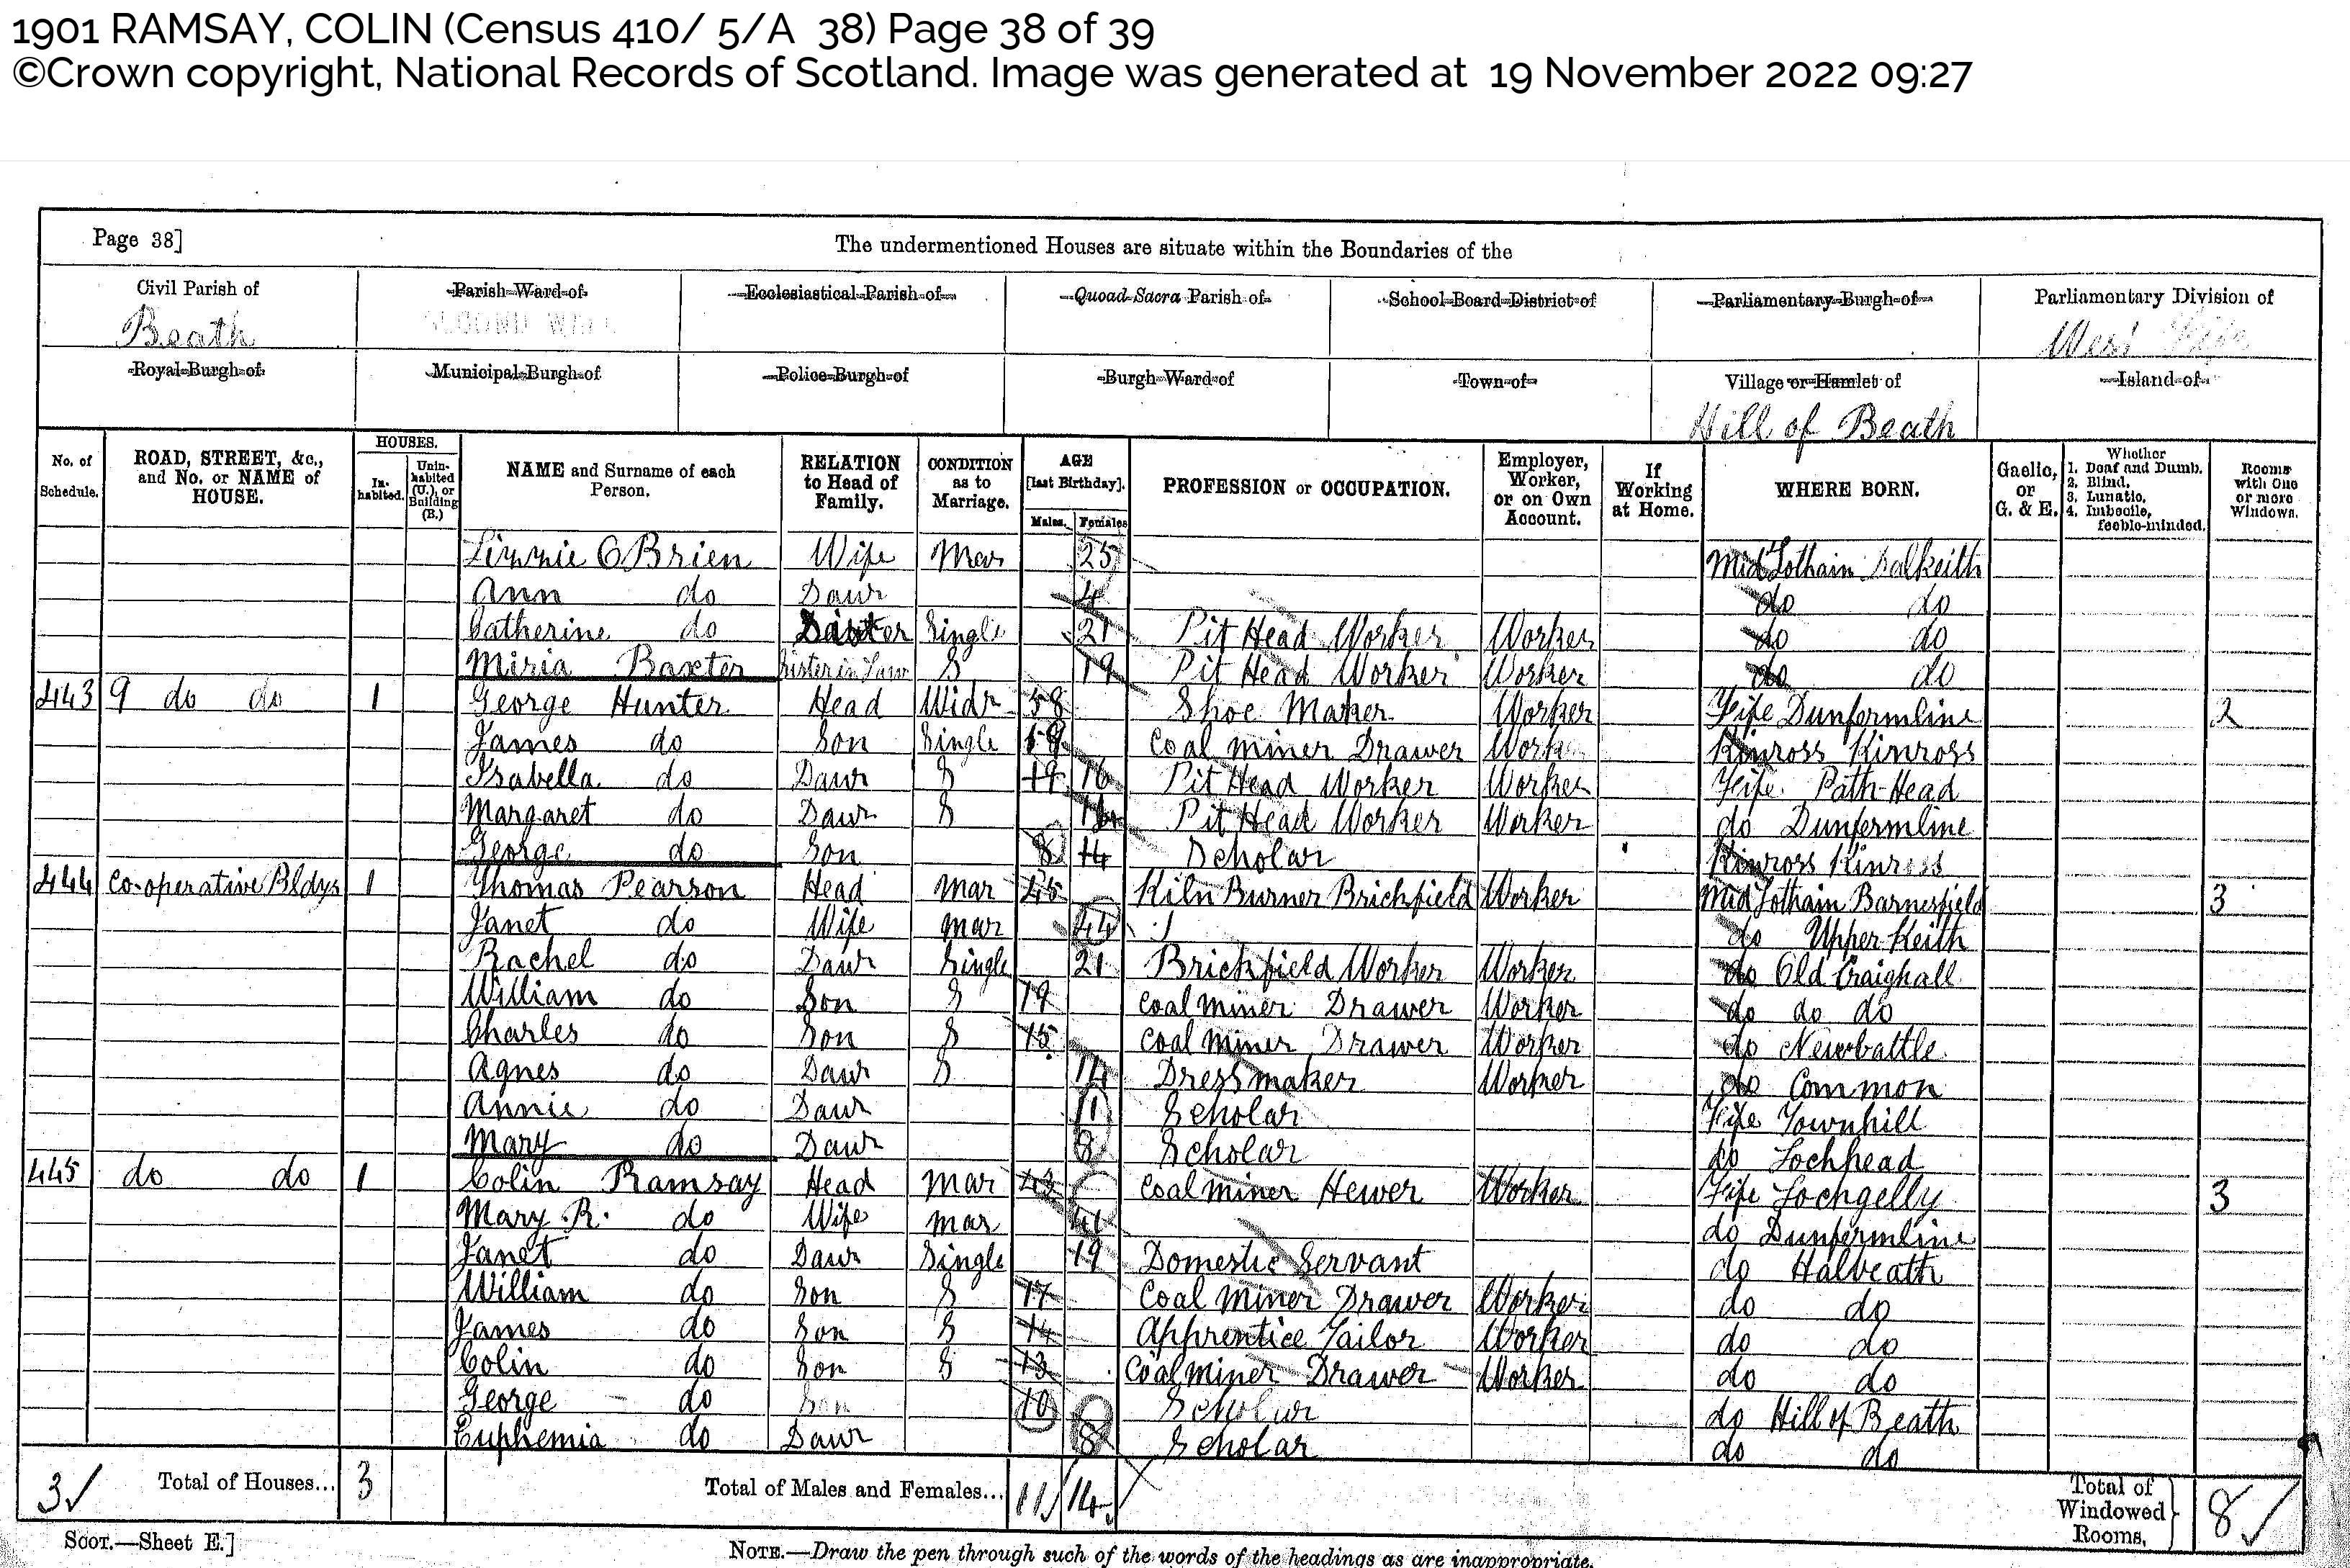 1901 RAMSAY, COLIN (Census 410/ 5/A 38) Page 38 of 39
©Crown copyright, National Records of Scotland. Image was generated at 19 November 2022 09:27
Page 38]
The undermentioned Houses are situate within the Boundaries of the
Civil Parish of Parish Ward of Ecclesiastical Parish of Quoad Sacra Parish of School Board District of Parliamentary Burgh of Parliamentary Division of
Beath West Fife
Royal Burgh of Municipal Burgh of Police Burgh of Burgh Ward of Town of Village or Hamlet of Island of
Hill of Beath
No. of Schedule. ROAD, STREET, &c., and No. or NAME of HOUSE. HOUSES. Inhabited. Uninhabited (U.), or Building (B.) NAME and Surname of each Person. RELATION to Head of Family. CONDITION as to Marriage. AGE [last Birthday]. Males. Females PROFESSION or OCCUPATION. Employer, Worker, or on Own Account. If Working at Home. WHERE BORN. Gaelic, or G. & E. Whether 1. Deaf and Dumb. 2. Blind. 3. Lunatic. 4. Imbecile, feeble-minded. Rooms with One or more Windows.
O'Brien Wife Mar 25 Mid Lothain Dalkeith
Ann do Daur 4 do do
Catherine do Sister Single 21 Pit Head Worker Worker do do
Miria Baxter Sister in Law S 19 Pit Head Worker Worker do do
443 9 do do 1 George Hunter Head Widr 58 Shoe Maker Worker Fife Dunfermline 2
James do Son Single 19 Coal miner Drawer Worker Kinross Kinross
Isabella do Daur S 19 16 Pit Head Worker Worker Fife Path-Head
Margaret do Daur S 14 Pit Head Worker Worker do Dunfermline
George do Son 8 14 Scholar Kinross Kinross
444 Co-operative Bldgs 1 Thomas Pearson Head Mar 45 Kiln Burner Brickfield Worker Mid Lothain Barnesfield 3
Janet do Wife mar 44 do Upper Keith
Rachel do Daur Single 21 Brickfield Worker Worker do Old Craighall
William do Son S 19 Coal miner Drawer Worker do do do
Charles do Son S 15 Coal Miner Drawer Worker do Newbattle
Agnes do Daur S 14 Dressmaker Worker do Common
Annie do Daur 11 Scholar Fife Townhill
Mary do Daur 8 Scholar do Lochhead
445 do do 1 Colin Ramsay Head Mar 43 Coal miner Hewer Worker Fife Lochgelly 3
Mary R. do Wife mar 41 do Dunfermline
Janet do Daur Single 19 Domestic Servant do Halbeath
William do Son S 17 Coal Miner Drawer Worker do do
James do Son S 14 Apprentice Tailor Worker do do
Colin do Son S 13 Coal miner Drawer Worker do do
George do Son 10 Scholar do Hill of Beath
Euphemia do Daur 8 Scholar do do
3 Total of Houses... 3 Total of Males and Females... 11 14 Total of Windowed Rooms, 8
SCOT.—Sheet E.]
NOTE.—Draw the pen through such of the words of the headings as are inappropriate.